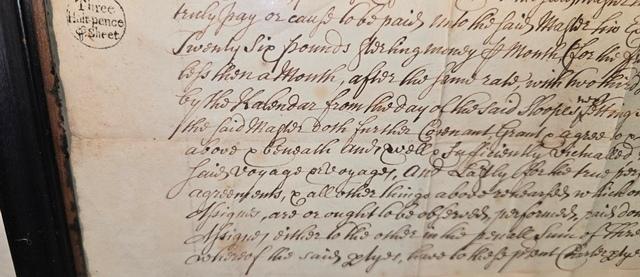 Three
Half pence
P Sheet.
truly pay or cause to be paid unto the said Master his
Twenty Six pounds Sterling money P Month, (for the
less then a Month, after the same rate, with two thirds
by the Kalendar from the day of the said Sloopes setting
the said Master doth further Covenant Grant & agree
above & beneath and well & sufficiently victualled
said voyage or voyages, And Lastly for the true per
agreements, & all other things above rehearsed which on
Assignes, are or ought to be observed, performed, paid done
Assignes either to the other in the penall Sum of Three
Whereof the said ptyes, have to these present Charterptye